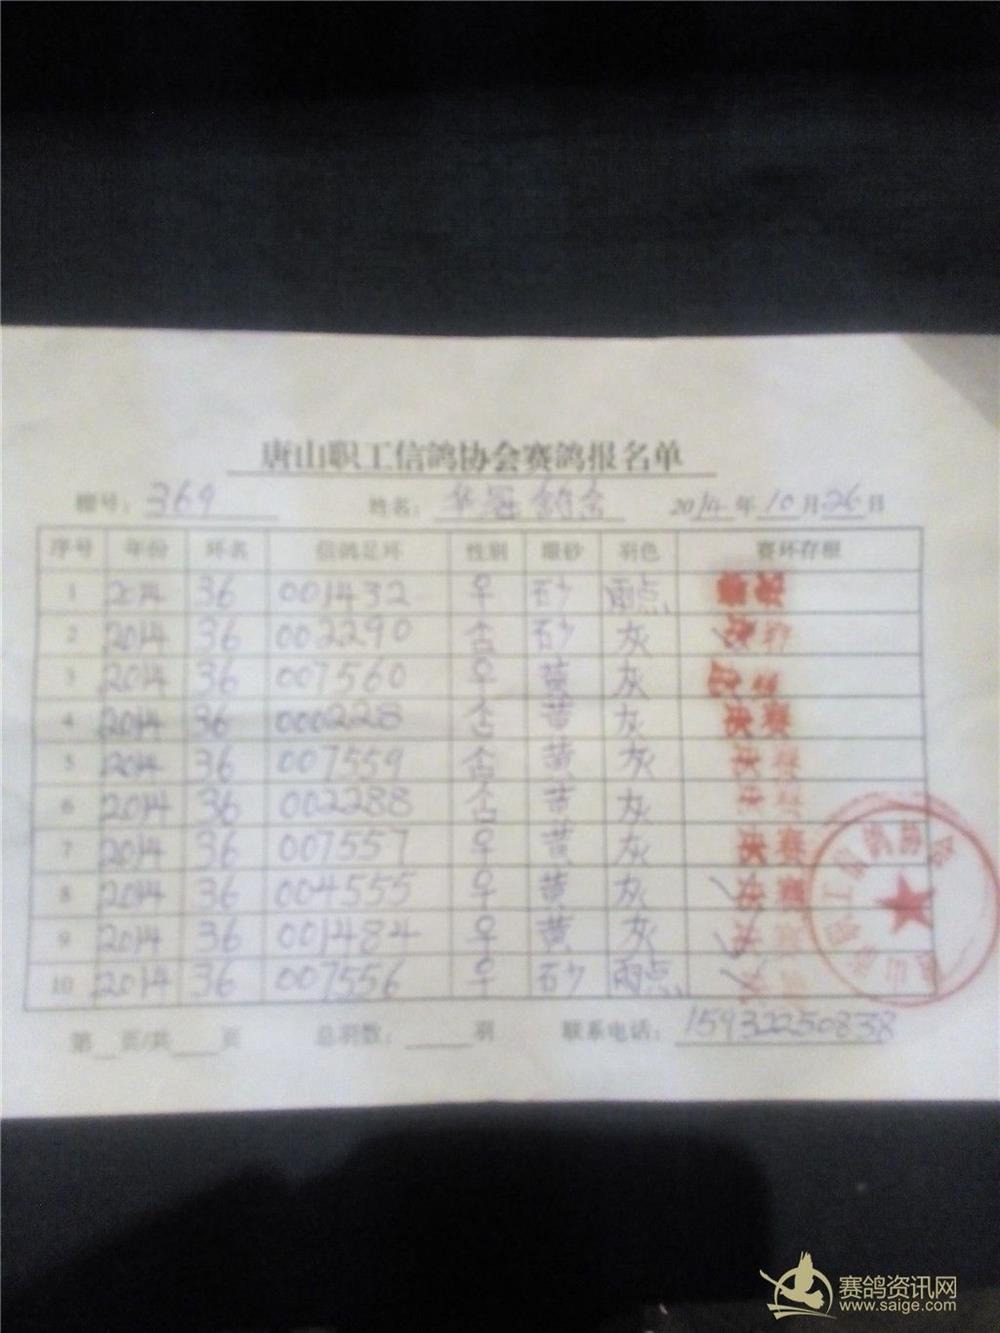 唐山职工信鸽协会赛鸽报名单
棚号：369 姓名：华冠鸽舍 2014年10月26日
序号 年份 环名 信鸽足环 性别 眼砂 羽色 赛环存根
1 2014 36 001432 早 砂 雨点
2 2014 36 002290 砂 灰
3 2014 36 007560 早 黄 灰
4 2014 36 000228 黄 灰 决赛
5 2014 36 007559 黄 灰 决赛
6 2014 36 002288 黄 灰
7 2014 36 007557 早 黄 灰 决赛
8 2014 36 004555 早 黄 灰 决赛
9 2014 36 001484 早 黄 灰
10 2014 36 007556 早 砂 雨点
第__页/共___页 总羽数：_____羽 联系电话：15932250838
赛鸽资讯网
www.saige.com